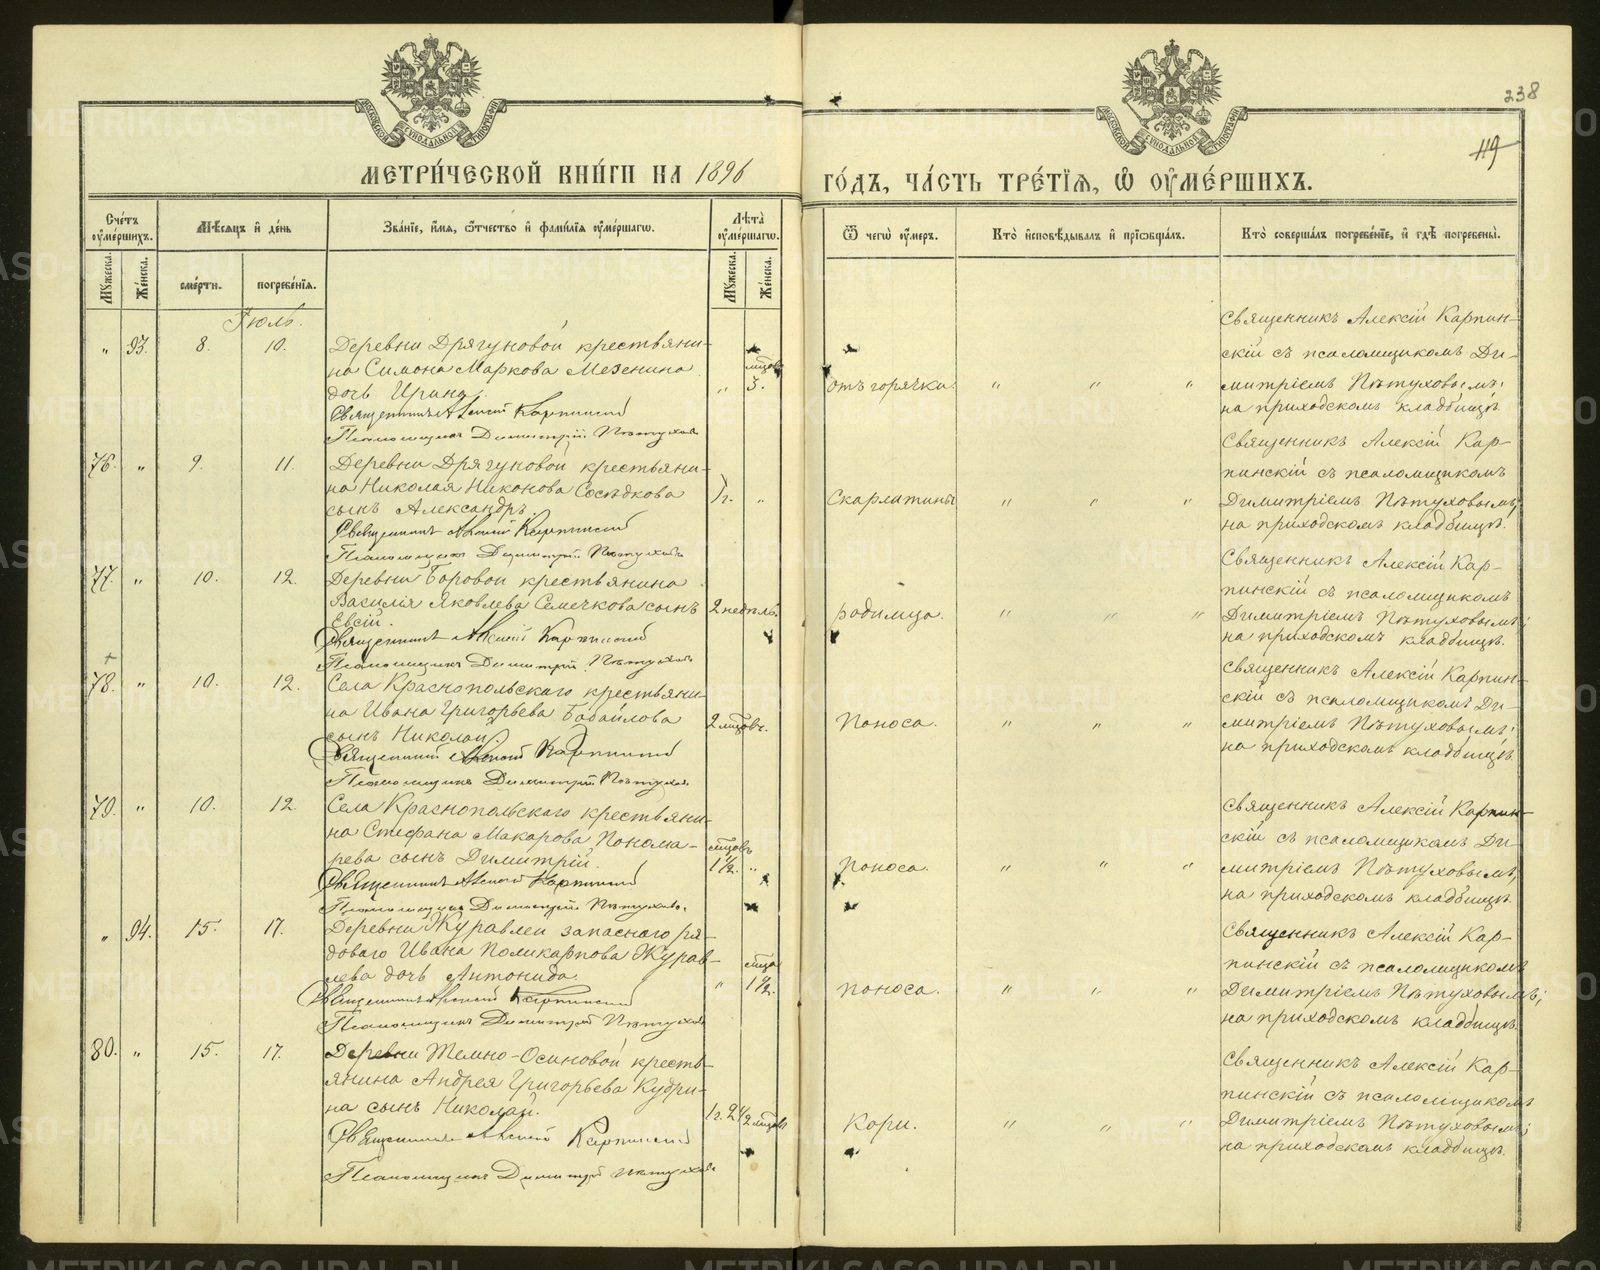 238
119
МОСКОВСКОЙ СѴНОДАЛЬНОЙ ТИПОГРАФІИ
МОСКОВСКОЙ СѴНОДАЛЬНОЙ ТИПОГРАФІИ
МЕТРИ́ЧЕСКОЙ КНИ́ГИ НА 1896 ГО́ДЪ, ЧА́СТЬ ТРЕ́ТІѦ, Ѽ ОУ҆МЕ́РШИХЪ.
Сче́тъ оу҆ме́ршихъ.
Мꙋ́жеска.
Же́нска.
Мѣ́сяцъ и҆ де́нь
сме́рти.
погребе́нїѧ.
Зва́нїе, и҆́мѧ, ѻ҆́тчество и҆ фами́лїѧ оу҆ме́ршагѡ.
Лѣ́та оу҆ме́ршагѡ.
Мꙋ́жеска.
Же́нска.
Ѿ чегѡ̀ оу҆́меръ.
Кто̀ и҆сповѣ́дывалъ и҆ прїѡбща́лъ.
Кто̀ соверша́лъ погребе́нїе, и҆ гдѣ̀ погребены̀.
Іюль.
" 93. 8. 10.
Деревни Дрягуновой крестьяни-
на Симона Маркова Мезенина
дочь Ирина.
Священникъ Алексій Карпинскій
Псаломщикъ Димитрій Пѣтуховъ
" мѣсяцовъ 3.
отъ горячки. " " "
Священникъ Алексій Карпин-
скій съ псаломщикомъ Ди-
митріемъ Пѣтуховымъ;
на приходскомъ кладбищѣ.
76. " 9. 11.
Деревни Дрягуновой крестьяни-
на Николая Никонова Сосѣдкова
сынъ Александръ.
Священникъ Алексій Карпинскій
Псаломщикъ Димитрій Пѣтуховъ
1 г. "
Скарлатины " " "
Священникъ Алексій Кар-
пинскій съ псаломщикомъ
Димитріемъ Пѣтуховымъ;
на приходскомъ кладбищѣ.
77. " 10. 12.
Деревни Боровой крестьянина
Василія Яковлева Семечкова сынъ
Евсій.
Священникъ Алексій Карпинскій
Псаломщикъ Димитрій Пѣтуховъ
2 недѣль.
родимца. " " "
Священникъ Алексій Кар-
пинскій съ псаломщикомъ
Димитріемъ Пѣтуховымъ;
на приходскомъ кладбищѣ.
+
78. " 10. 12.
Села Краснопольскаго крестьяни-
на Ивана Григорьева Бабайлова
сынъ Николай.
Священникъ Алексій Карпинскій
Псаломщикъ Димитрій Пѣтуховъ
2 мѣсяцовъ.
Поноса. " " "
Священникъ Алексій Карпин-
скій съ псаломщикомъ Ди-
митріемъ Пѣтуховымъ;
на приходскомъ кладбищѣ.
79. " 10. 12.
Села Краснопольскаго крестьяни-
на Стефана Макарова Понома-
рева сынъ Димитрій.
Священникъ Алексій Карпинскій
Псаломщикъ Димитрій Пѣтуховъ.
мѣсяцовъ 1½. "
Поноса. " " "
Священникъ Алексій Карпин-
скій съ псаломщикомъ Ди-
митріемъ Пѣтуховымъ;
на приходскомъ кладбищѣ.
" 94. 15. 17.
Деревни Журавлей запаснаго ря-
доваго Ивана Поликарпова Журав-
лева дочь Антонида.
Священникъ Алексій Карпинскій
Псаломщикъ Димитрій Пѣтуховъ
" мѣсяца 1½.
поноса. " " "
Священникъ Алексій Кар-
пинскій съ псаломщикомъ
Димитріемъ Пѣтуховымъ;
на приходскомъ кладбищѣ.
80. " 15. 17.
Деревни Темно-Осиновой кресть-
янина Андрея Григорьева Кудри-
на сынъ Николай.
Священникъ Алексій Карпинскій
Псаломщикъ Димитрій Пѣтуховъ
кори. " " "
Священникъ Алексій Кар-
пинскій съ псаломщикомъ
Димитріемъ Пѣтуховымъ;
на приходскомъ кладбищѣ.